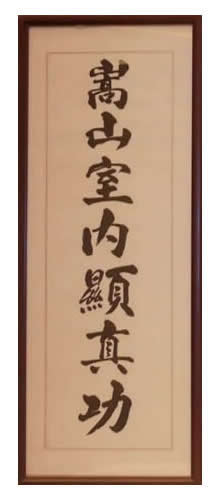 嵩山室内顯真功